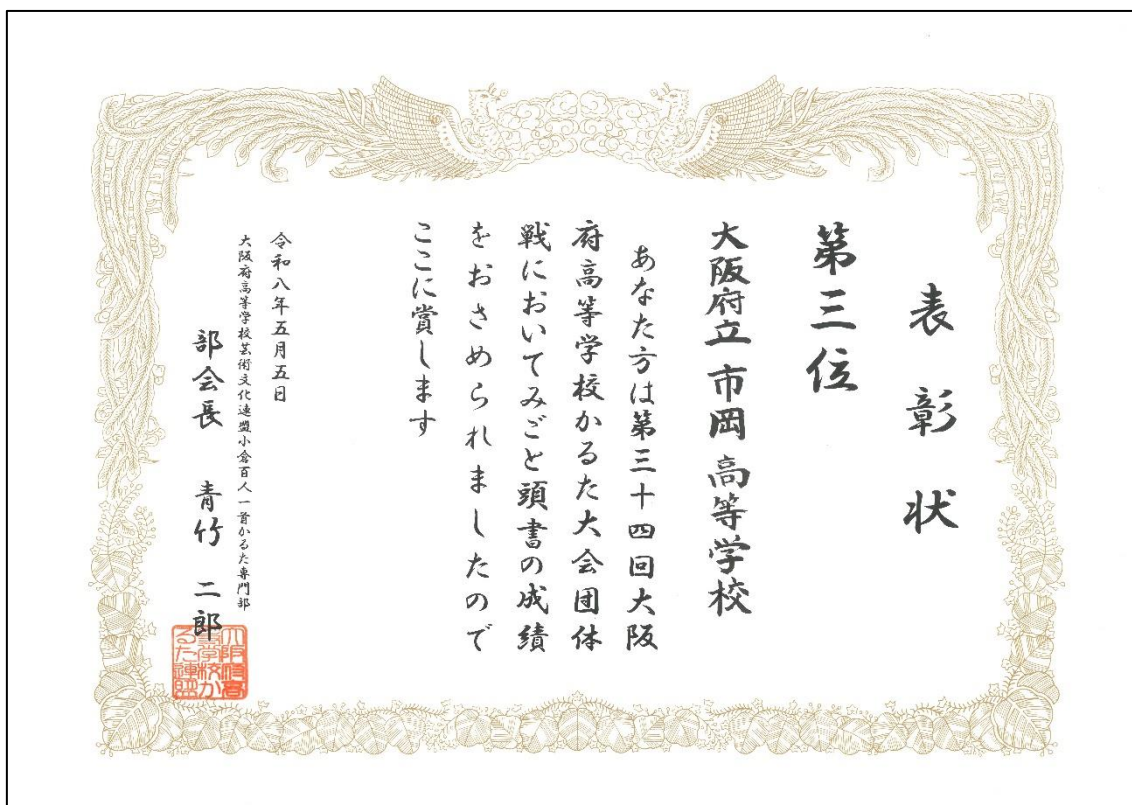 表彰状
第三位
大阪府立市岡高等学校
あなた方は第三十四回大阪
府高等学校かるた大会団体
戦においてみごと頭書の成績
をおさめられましたので
ここに賞します
令和八年五月五日
大阪府高等学校芸術文化連盟小倉百人一首かるた専門部
部会長 青竹 二郎
大阪府高
等学校か
るた連盟